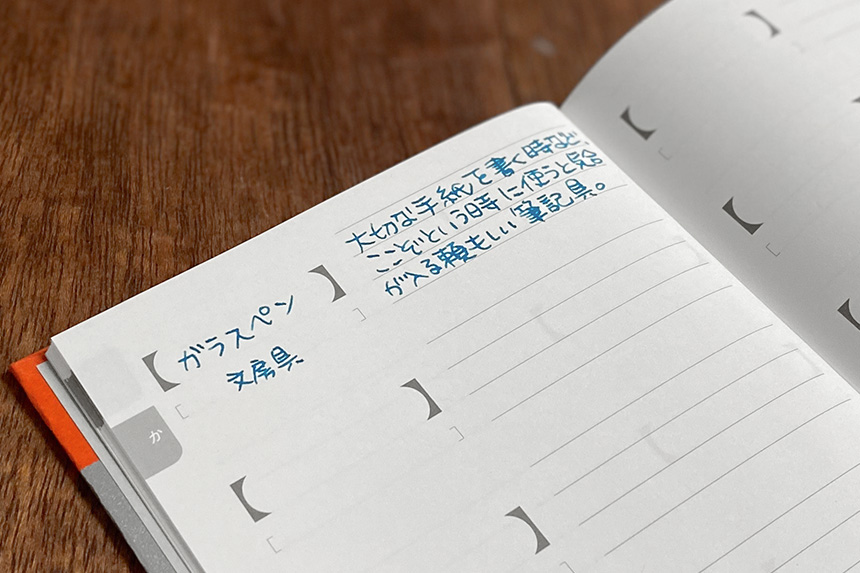 か
【ガラスペン】
[文房具]
大切な手紙を書く時など、
ここぞという時に使うと気合
が入る頼もしい筆記具。